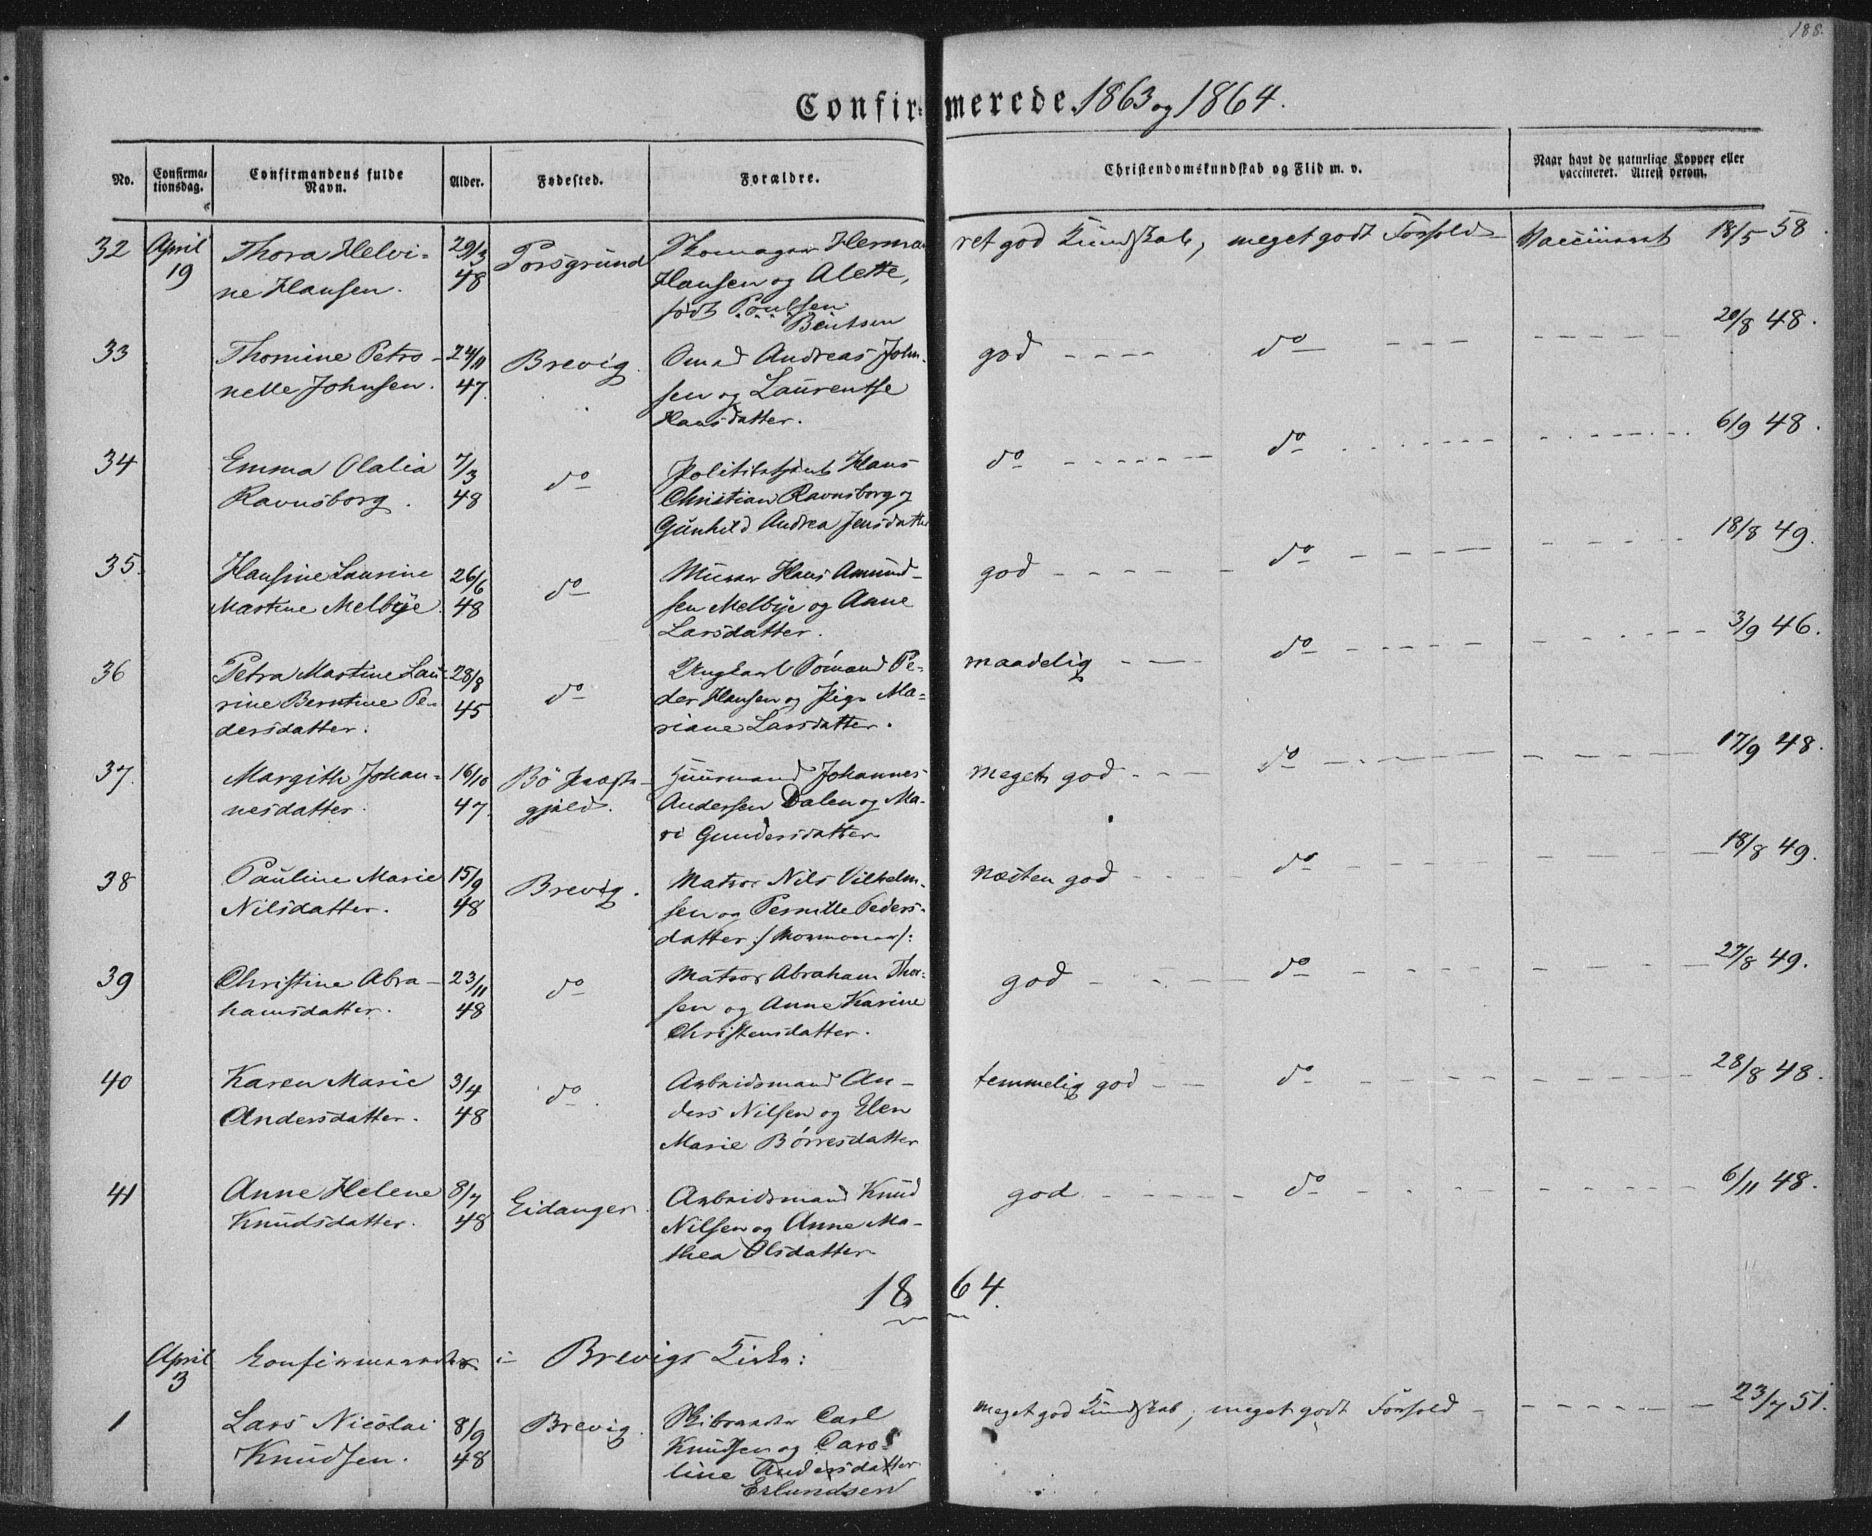 188.
Confirmerede 1863 og 1864.
No.
Confirmationsdag.
Confirmandens fulde Navn.
Alder.
Fødested.
Forældre.
Christendomskundskab og Flid m. v.
Naar havt de naturlige Kopper eller vaccineret. Attest derom.
32 April 19 Thora Helvi- 29/3 48 Porsgrund Skomager Herman ret god Kundskab, meget godt Forhold Vaccineret 18/5 58.
ne Hansen. Hansen og Alette,
født Poulsen
Bentsen
33 Thomine Petro- 24/11 47. Brevig. Smed Andreas John- god do 20/8 48.
nelle Johnsen. sen og Laurentse
Hansdatter.
34 Emma Olalia 7/3 48 do Polititstjent Hans do do 6/9 48.
Ravnsborg. Christian Ravnsborg og
Gunhild Andrea Jensdatter
35. Hansine Laurine 26/6 48 do Murer Hans Amund- god do 18/8 49.
Martine Melbye. sen Melbye og Anne
Larsdatter.
36 Petra Martine Lau- 28/8 45 do Ungkarl Sømand Pe- maadelig do 3/9 46.
rine Berntine Pe- der Hansen og Pige Ma-
dersdatter. riane Larsdatter.
37. Margith Johan- 16/10 47. Bö Præste- Huusmand Johannes meget god do 17/9 48.
nesdatter. gjæld. Andersen Dalen og Ma-
ri Gundersdatter
38 Pauline Marie 15/9 48 Brevig. Matros Nils Vilhelm- næsten god do 18/8 49.
Nilsdatter. sen og Pernille Peders-
datter :/ Mormoner /:
39 Christine Abra- 23/11 48 do Matros Abraham Thor- god do 27/8 49.
hamsdatter. sen og Anne Karine
Christensdatter.
40 Karen Marie 3/4 48 do. Arbeidsmand An- temmelig god do 28/8 48.
Andersdatter. ders Nilsen og Elen
Marie Börresdatter
41 Anne Helene 8/7 48 Eidanger. Arbeidsmand Knud god do 6/11 48.
Knudsdatter. Nilsen og Anne Ma-
thea Olsdatter
1864.
April 3 Confirmerede i Brevigs Kirke:
1 Lars Nicolai 8/9 48 Brevig. Skibsreder Carl meget god Kundskab, meget godt Forhold 23/7 51.
Knudsen. Knudsen og Caro-
line Andersdatter
Erlundsen